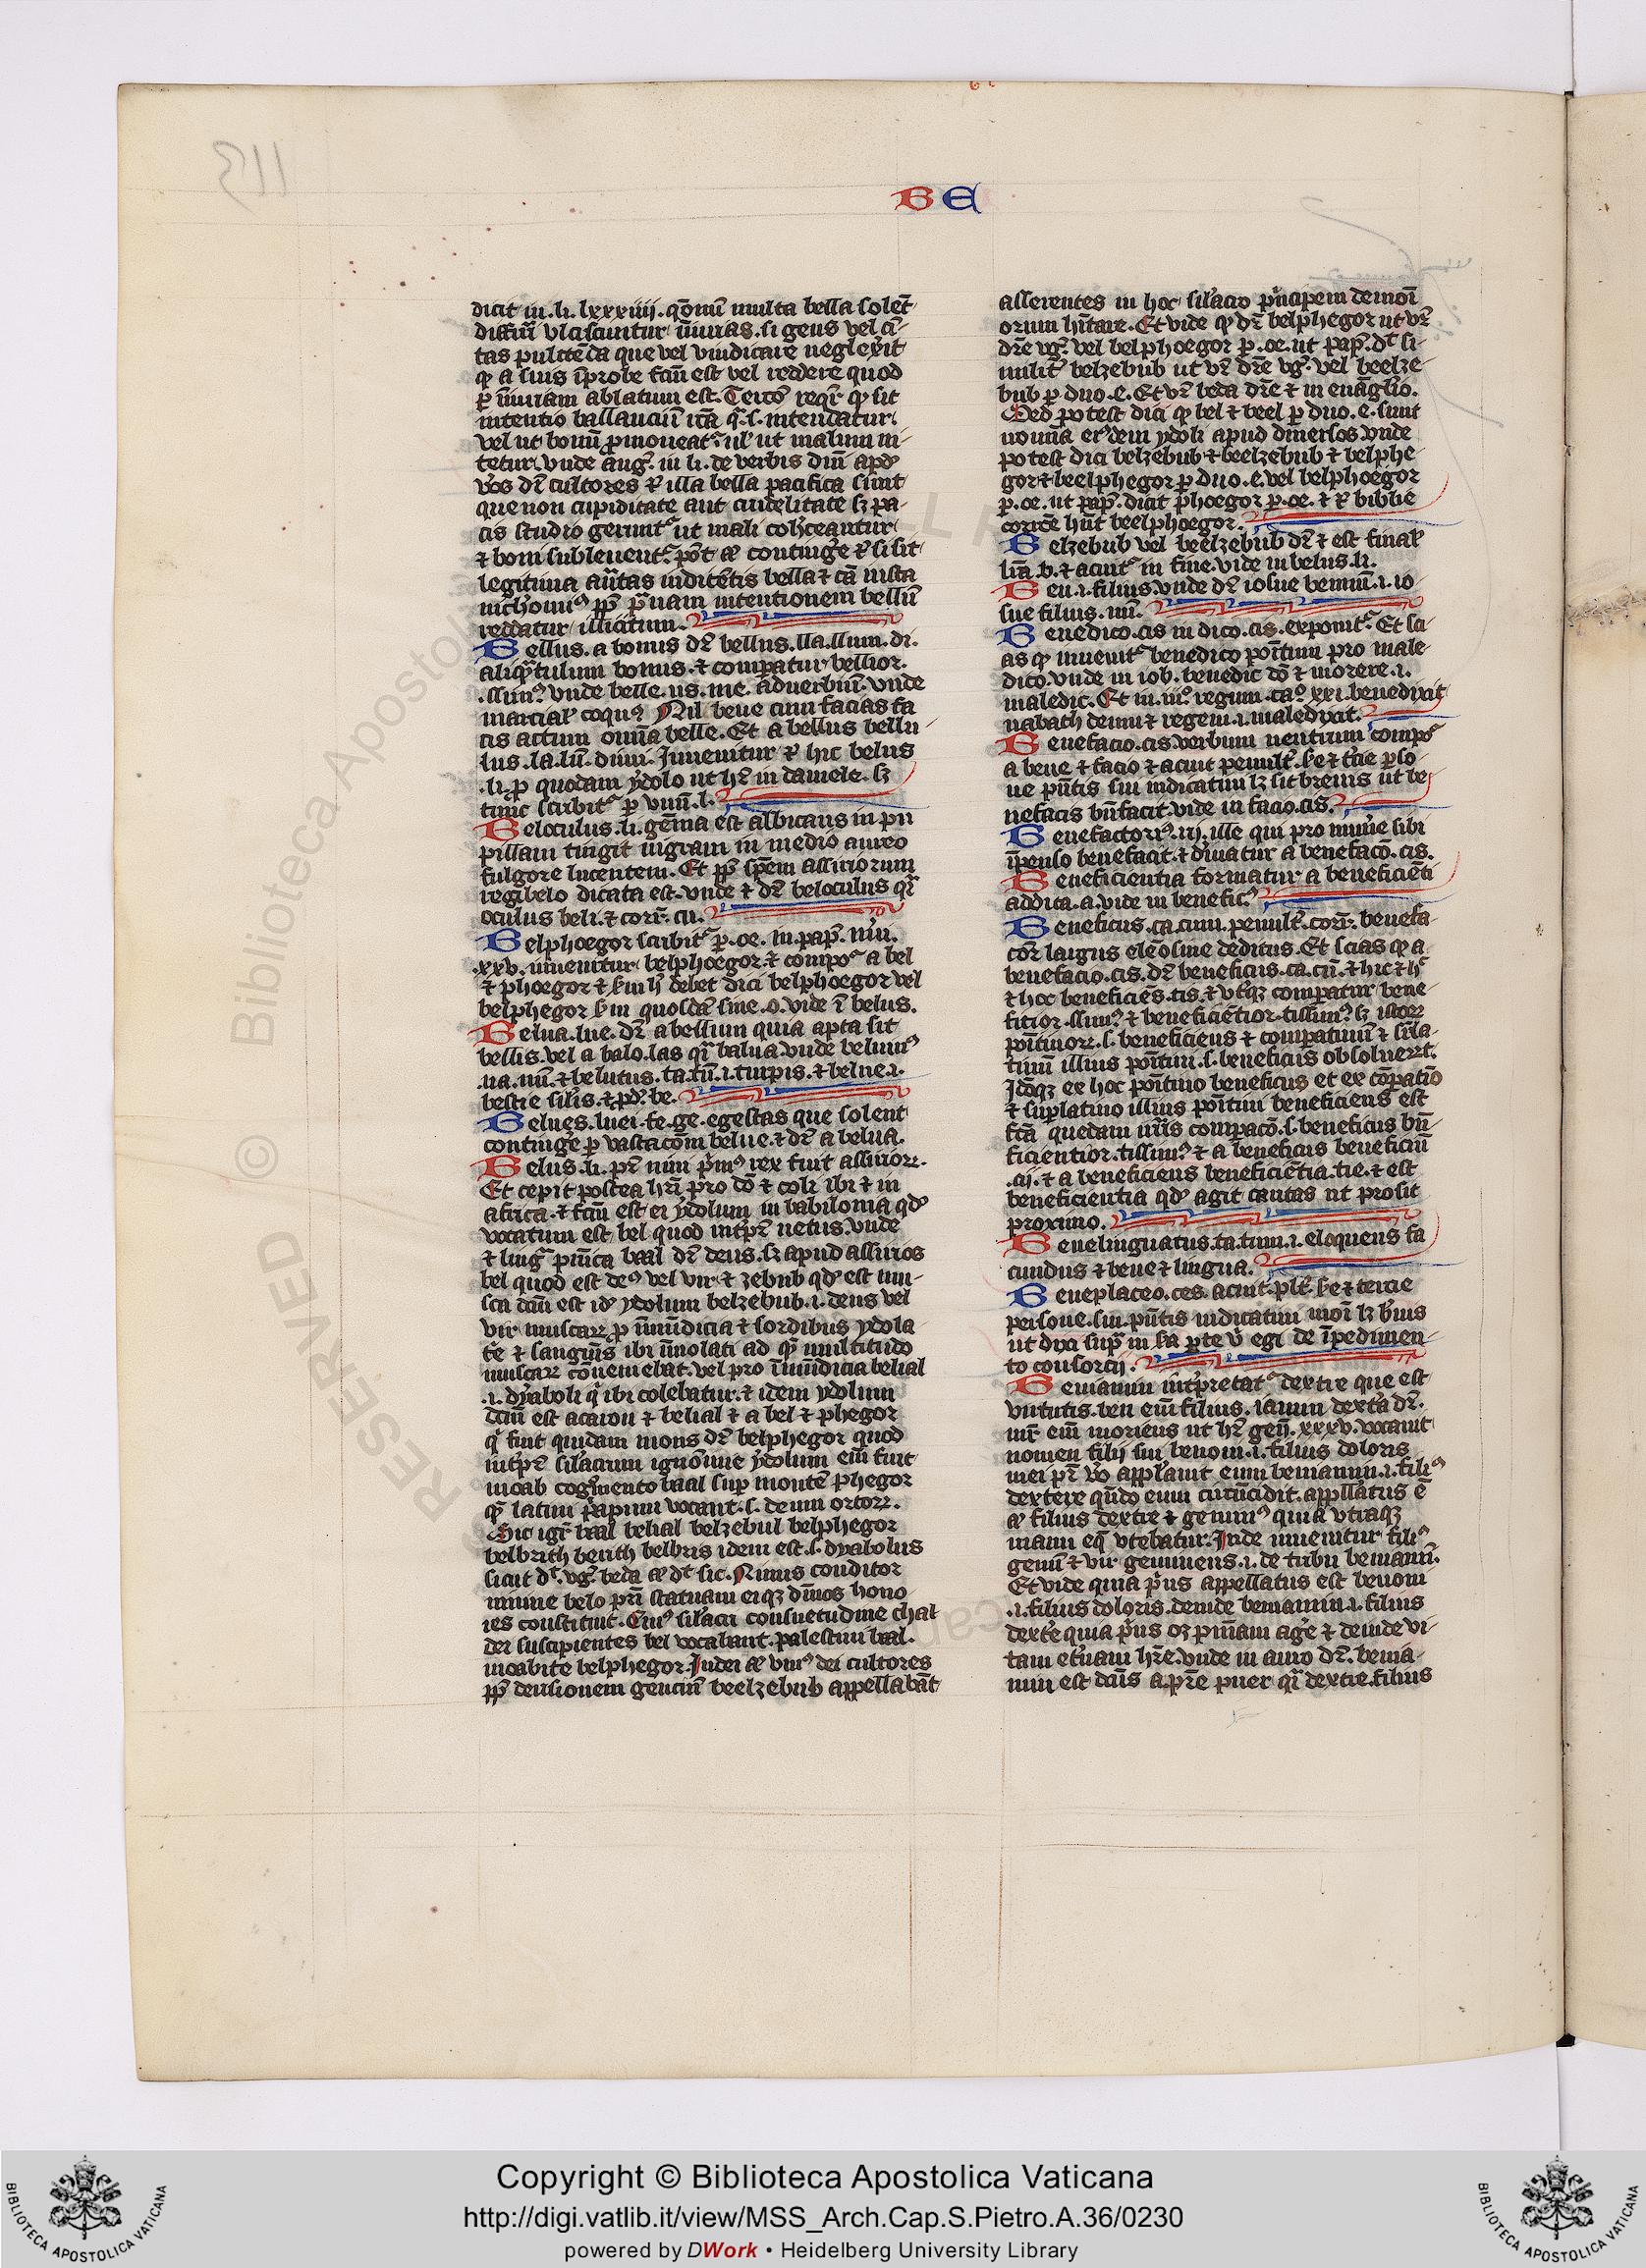 BE
dicit in .li. lxxxiiii. qm̄ iusta bella solēt
diffiniri vlciscuntur iniurias. si gens vel ci-
tas plectēda que vel vindicare neglexit
qđ a suis īprobe factū est vel reddere quod
ꝑ iniuriam ablatum est. Tercio reqr̄ qđ sit
intentio ballanciū itā qđ .s. intendatur
vel ut bonū ꝓmoueatur ul' ut malum ui-
tetur. vnde aug. in li. de verbis dn̄i apđ
vos dei cultores ēt illa bella pacifica sunt
que non cupiditate aut crudelitate sꝫ pa-
cis studio gerunt' ut mali coherceantur
⁊ boni subleuent'. pōt aūt continge' ēt si sit
legitima auctas indicētis bella ⁊ cā iusta
nichomin' ꝓpt' prauam intentionem bellū
reddatur illicitum.
Bellus. a bonus dr̄ bellus. lla. llum. di.
aliqntulum bonus. ⁊ comparatur bellior.
.ssim'. vnde belle. us. me. aduerbiū. vnde
marcial' coqus Nil bene cum facias fa
cis actum omīa belle. Et a bellus bellu-
lus. la. lū. dimi. Inuenitur ēt hic belus
.li. ꝓ quodam ydolo ut hr̄ in daniele. sꝫ
tunc scribit' ꝑ vnū .l.
Beloculus. li. gēma est albicans in pu
pillam tingit nigram in medio aureo
fulgore lucentem. Et ꝓpt' spēm assiriorum
regi belo dicata est. vnde ⁊ dr̄ beloculus qr̄
oculus beli. ⁊ corr̄. cu.
Belphoegor scribit' ꝑ .oe. in pap̄. nūi.
.xxv. inuenitur belphoegor. ⁊ compo' a bel
⁊ phoegor ⁊ s'm h' debet dici belphoegor vel
belphegor s'm quosdā sine .o. vide ī belus.
Belua. lue. dr̄ a bellum quia apta sit
bellis. vel a balo. las qr̄ balua. vnde beluin'
.na. nū. ⁊ belutus. ta. tū. .i. turpis. ⁊ belue .i.
bestie silis. ⁊ ꝓđ. be.
Belues. luei. fe. ge. egestas que solent
continge' ꝑ vastacōm belue. ⁊ dr̄ a belua.
Belus. li. pr̄ nini p'm' rex fuit assirior̄.
Et cepit postea hrī pro dō ⁊ coli ibi ⁊ in
africa. ⁊ fcm̄ est ei ydolum in babilonia qđ
vocatum est bel quod intpr̄ uetus. vnde
⁊ ling' pūica baal dr̄ deus. sꝫ apud assirios
bel quod est de' vel vir ⁊ zebub qđ est mu-
sca dcm̄ est id' ydolum belzebub .i. deus vel
vir muscar̄ ꝓ immūdicia ⁊ sordibus ydola-
trie ⁊ sanguis ibi īmolati ad qđ multitudo
muscar̄ cōueniebat. vel pro īmūdicia belial
.i. dyaboli q' ibi colebatur. ⁊ idem ydolum
dcm̄ est acaron ⁊ belial ⁊ a bel ⁊ phegor
q' fuit quidam mons dr̄ belphegor quod
intpr̄ sil'acrum ignomīnie ydolum em̄ fuit
moab cognmento baal sup montē phegor
qđ latini priapum vocant .s. deum ortor̄.
Hic igr̄ baal belial belzebul belphegor
belbrith berith belbris idem est .s. dyabolus
sicut d't. vg'. beda aūt d't sic. Ninus conditor
niniue belo pr̄i statuam eiqꝫ diuos hono
res constituit. Cui' sil'acri consuetudine chal
dei suscipientes bel vocabant. palestini baal.
moabite belphegor. Iudei aūt vni' dei cultores
ꝓpt' derisionem gencium beelzebub appellabāt
asserentes in hoc sil'acro principem demoi
orum hītare. Et vide qđ dr̄ belphegor ut vr̄
dr̄e vg'. vel belphoegor ꝑ .oe. ut pap̄. d't si-
mulit' belzebub ut vr̄ dr̄e vg'. vel beelze-
bub ꝑ duo .e. Et vr̄ beda dr̄e ⁊ in euāglio.
Sed potest dici qđ bel ⁊ beel ꝑ duo .e. sunt
nomīa eiusdem ydoli apud diuersos. vnde
potest dici belzebub ⁊ beelzebub ⁊ belphe-
gor ⁊ beelphegor ꝑ duo .e. vel belphoegor
ꝑ .oe. ut pap̄. dicit phoegor ꝑ .oe. ⁊ ēt biblie
correcte hn̄t beelphoegor.
Belzebub vel beelzebub dr̄ ⁊ est final'
lr̄a .b. ⁊ acuit' in fine. vide in belus. li.
Ben .i. filius. vnde dr̄ iosue bennū .i. io
sue filius. nū.
Benedico. cis in dico. cis. exponit'. Et sci-
as qđ inuenit' benedico positum pro male-
dico. vnde in iob. benedic dō ⁊ morere .i.
maledic. Et in .iii. regum. ca. xxi. benedixit
nabath deum ⁊ regem .i. maledixit.
Benefacio. cis. verbum neutrum compo'
a bene ⁊ facio ⁊ acuit penult'. s'e ⁊ t'cie p'so
ne pn̄tis sui indicatiui lꝫ sit breuis ut be
nefacis bn̄facit. vide in facio. cis.
Benefactori'. rij. ille qui pro mune' sibi
īpenso benefacit. ⁊ diuatur a benefacō. cis.
Beneficientia formatur a beneficiēti
addita .a. vide in benefic'.
Beneficus. ca. cum. penult'. corr̄. benefa-
ctor largus elemosine deditus. Et scias qđ a
benefacio. cis. dr̄ beneficus. ca. cū. ⁊ hic ⁊ h'
⁊ hoc beneficiēs. tis. ⁊ vtqꝫ comparatur bene-
ficior. ssim'. ⁊ beneficiētior. tissim'. sꝫ istor̄
positiuor̄ .s. beneficiens ⁊ comparatiuū ⁊ supla-
tiuū illius positiui .s. beneficus obsoluerūt.
Idcoqꝫ ex hoc positiuo beneficus et ex cōparatio
⁊ suplatiuo illius positiui beneficiens est
fcā quedam nr̄is comparacō .s. beneficus bn̄
ficientior. tissim'. ⁊ a beneficus beneficiū
.cij. ⁊ a beneficiens beneficiētia. tie. ⁊ est
beneficientia qđ agit caritas ut prosit
proximo.
Benelinguatus. ta. tum. .i. eloquens fa
cundus ⁊ bene ⁊ lingua.
Beneplaceo. ces. acuit. plt'. s'e ⁊ tercie
persone. sui. pn̄tis indicatiui moī lꝫ b'uis
ut dixi sup' in s'a parte v' egi de īpedimen-
to consorcij.
Beniamin int'pretat' dextre que est
virtutis. ben em̄ filius. iamin dextra dr̄.
mr̄ em̄ moriens ut hr̄ gen̄. xxxv. vocauit
nomen filij sui benom .i. filius doloris
mei pr̄ vo appl'auit eum beniamin .i. fili'
dextere qn̄do eum circūcidit. appllatus ē
aūt filius dextre ⁊ gemin' quia vtraqꝫ
manu eq' vtebatur. Inde inuenitur fili'
gemī ⁊ vir gemineus .i. de tribu beniamī.
Et vide quia p'us appellatus est benoni
.i. filius doloris. deinde beniamin .i. filius
dextre quia p'us oꝫ pniām age' ⁊ deinde vi-
tam et'nam hr̄e. vnde in auro dr̄. benia-
min est dcūs a pr̄e puer qr̄ dextre. filius
Copyright © Biblioteca Apostolica Vaticana
http://digi.vatlib.it/view/MSS_Arch.Cap.S.Pietro.A.36/0230
powered by DWork • Heidelberg University Library